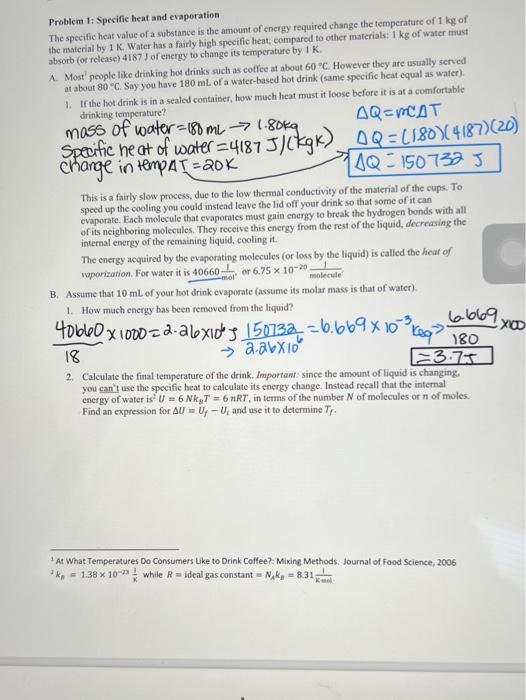 Problem 1: Specific heat and evaporation
The specific heat value of a substance is the amount of energy required change the temperature of 1 kg of
the material by 1 K. Water has a fairly high specific heat; compared to other materials: 1 kg of water must
absorb (or release) 4187 J of energy to change its temperature by 1 K.
A. Most¹ people like drinking hot drinks such as coffee at about 60 °C. However they are usually served
at about 80 °C. Say you have 180 mL of a water-based hot drink (same specific heat equal as water).
1. If the hot drink is in a sealed container, how much heat must it loose before it is at a comfortable
drinking temperature?
ΔQ=mCΔT
mass of water=180mL → 1.80kg
ΔQ=(.180)(4187)(20)
Specific heat of water=4187 J/(kgK)
ΔQ=150732 J
change in temp ΔT=20K
This is a fairly slow process, due to the low thermal conductivity of the material of the cups. To
speed up the cooling you could instead leave the lid off your drink so that some of it can
evaporate. Each molecule that evaporates must gain energy to break the hydrogen bonds with all
of its neighboring molecules. They receive this energy from the rest of the liquid, decreasing the
internal energy of the remaining liquid, cooling it.
The energy acquired by the evaporating molecules (or loss by the liquid) is called the heat of
vaporization. For water it is 40660 J/mol, or 6.75 × 10⁻²⁰ J/molecule.
B. Assume that 10 mL of your hot drink evaporate (assume its molar mass is that of water).
1. How much energy has been removed from the liquid?
40660/18 x1000=2.26x10⁶J → 150732/2.26x10⁶ =6.669x10⁻³kg→ 6.669/180 x100
=3.75
2. Calculate the final temperature of the drink. Important: since the amount of liquid is changing,
you can't use the specific heat to calculate its energy change. Instead recall that the internal
energy of water is² U = 6 Nk_BT = 6 nRT, in terms of the number N of molecules or n of moles.
Find an expression for ΔU = U_f − U_i and use it to determine T_f.
¹ At What Temperatures Do Consumers Like to Drink Coffee?: Mixing Methods. Journal of Food Science, 2006
² k_B = 1.38 × 10⁻²³ J/K while R = ideal gas constant = N_Ak_B = 8.31 J/K mol